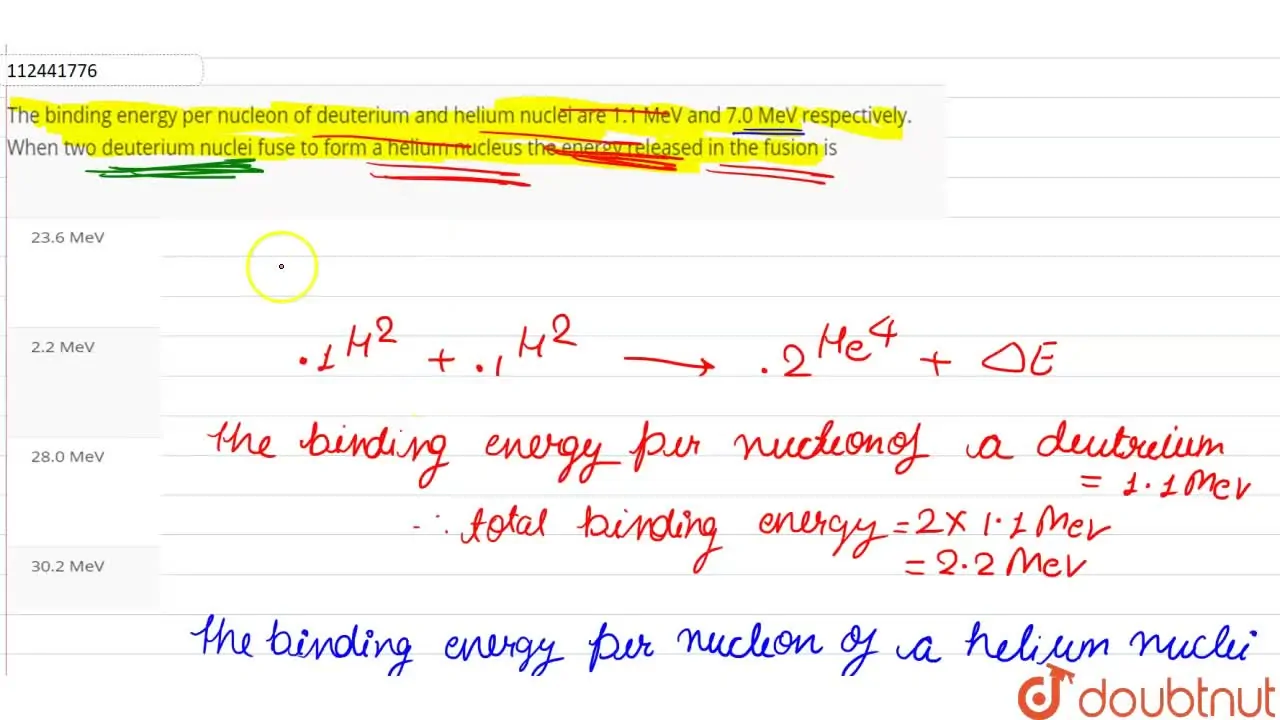 112441776
The binding energy per nucleon of deuterium and helium nuclei are 1.1 MeV and 7.0 MeV respectively.
When two deuterium nuclei fuse to form a helium nucleus the energy released in the fusion is
23.6 MeV
.1H² + .1H² → .2He⁴ + ΔE
2.2 MeV
the binding energy per nucleon of a deutreium
28.0 MeV
= 1.1 Mev
∴ total binding energy = 2 × 1.1 Mev
= 2.2 Mev
30.2 MeV
the binding energy per nucleon of a helium nuclei
doubtnut